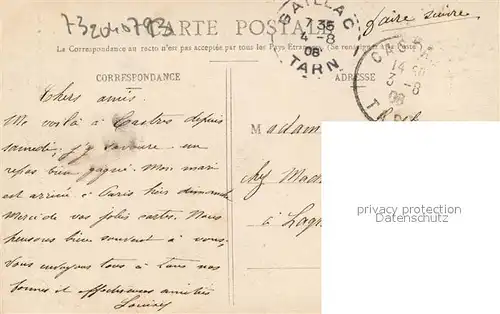 73204079
CARTE POSTALE
faire suivre
La Correspondance au recto n'est pas acceptée par tous les Pays Etrangers (Se renseigner à la Poste)
GAILLAC
7 35
4 -8
08
TARN
14
3 -8
08
CORRESPONDANCE
ADRESSE
Chers amis.
Me voilà à Castres depuis
samedi, j'y savoure un
repos bien gagné. Mon mari
est arrivé à Paris hier dimanche
Merci de vos jolies cartes. Nous
pensons bien souvent à vous.
Vous envoyons tous à tous nos
bonnes et affectueuses amitiés
Louise
Madam
chez Mad
à Lag
privacy protection
Datenschutz